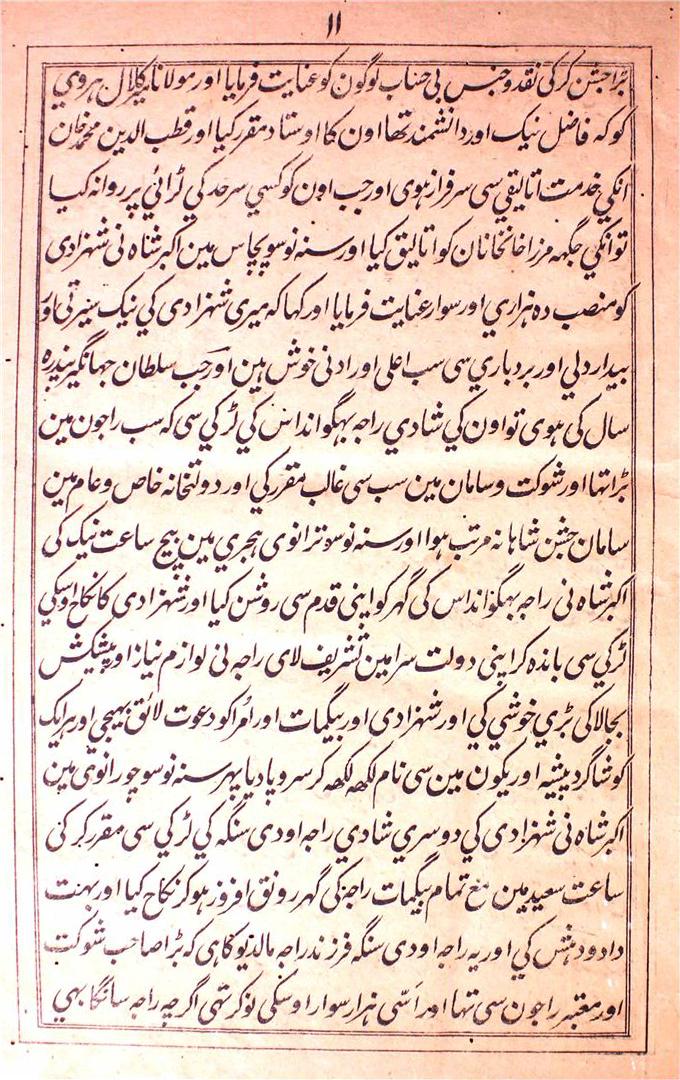 ۱۱
بڑا جشن کر کی نقد و جنس بی حساب لوگون کو عنایت فرمایا اور مولانا میر کلان ہروی
کو کہ فاضل نیک اور دانشمند تھا اون کا اوستاد مقرر کیا اور قطب الدین محمد خان
انکی خدمت اتالیقی سی سرفراز ہوی اور جب اون کو کسی سرحد کی لڑائی پر روانہ کیا
تو انکی جگہہ مرزا خانخانان کو اتالیق کیا اور سنہ نو سو پچاس مین اکبر شاہ نی شہزادی
کو منصب دہ ہزاری اور سوار عنایت فرمایا اور کہا کہ میری شہزادی کی نیک سیرتی اور
بیدار دلی اور بردباری سی سب اعلی اور ادنی خوش ہین اور جب سلطان جہانگیر پندرہ
سال کی ہوی تو اون کی شادی راجہ بہگوانداس کی لڑکی سی کہ سب راجون مین
بڑا تہا اور شوکت و سامان مین سب سی غالب مقرر کی اور دولتخانہ خاص و عام مین
سامان جشن شاہانہ مرتب ہوا اور سنہ نو سو ترانوی ہجری مین بیچ ساعت نیک کی
اکبر شاہ نی راجہ بہگوانداس کی گہر کو اپنی قدم سی روشن کیا اور شہزادی کا نکاح اوسکی
لڑکی سی باندہ کر اپنی دولت سرا مین تشریف لای راجہ نی لوازم نیاز اور پیشکش
بجا لا کی بڑی خوشی کی اور شہزادی اور بیگمات اور امرا کو دعوت لائق بہیجی اور ہر ایک
کو شاگرد پیشہ اور یکون مین سی نام لکھ لکھ کر سروپا دیا پہر سنہ نو سو چورانوی مین
اکبر شاہ نی شہزادی کی دوسری شادی راجہ اودی سنگہ کی لڑکی سی مقرر کر کی
ساعت سعید مین مع تمام بیگمات راجہ کی گہر رونق افروز ہو کر نکاح کیا اور بہت
داد و دہش کی اور یہ راجہ اودی سنگہ فرزند راجہ مالدیو کا ہی کہ بڑا صاحب شوکت
اور معتبر راجون سی تہا اور اسّی ہزار سوار اوسکی نوکر تہی اگرچہ راجہ سانگا بہی